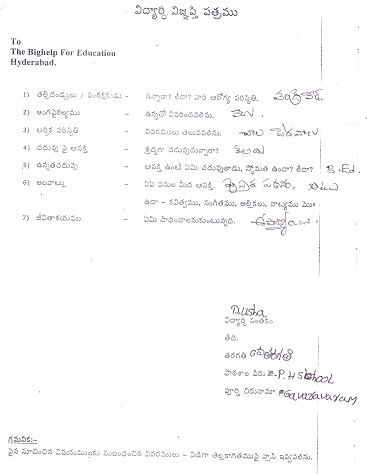 విద్యార్థి విజ్ఞప్తి పత్రము
To
The Bighelp For Education
Hyderabad.
1) తల్లిదండ్రులు / సంరక్షకుడు - ఉన్నారా? లేదా? వారి ఆరోగ్య పరిస్థితి.
2) అంగవైకల్యము - ఉన్నచో వివరించవలెను. లేదు
3) ఆర్థిక పరిస్థితి - వివరములు తెలుపవలెను. చాల పేదవారు
4) చదువు పై ఆసక్తి - శ్రద్ధగా చదువుచున్నారా? కలదు
5) ఉన్నతచదువు - ఆసక్తి ఉంటే ఏమి చదువుతాడు, స్తోమత ఉందా? లేదా? B.Ed.
6) అలవాట్లు - ఏఏ పనుల మీద ఆసక్తి. పుస్తక పఠనం,
ఉదా - కవిత్వము, సంగీతము, అల్లికలు, నాట్యము
7) జీవితాశయము - ఏమి సాధించాలనుకుంటున్నది.
D.Usha
విద్యార్థి సంతకం
తేది.
తరగతి
పాఠశాల పేరు Z.P.H School
పూర్తి చిరునామా Gavaravaram
గమనిక:-
పైన సూచించిన విషయములకు సంబంధించిన వివరములు - విడిగా తెల్లకాగితముపై వ్రాసి ఇవ్వవలెను.